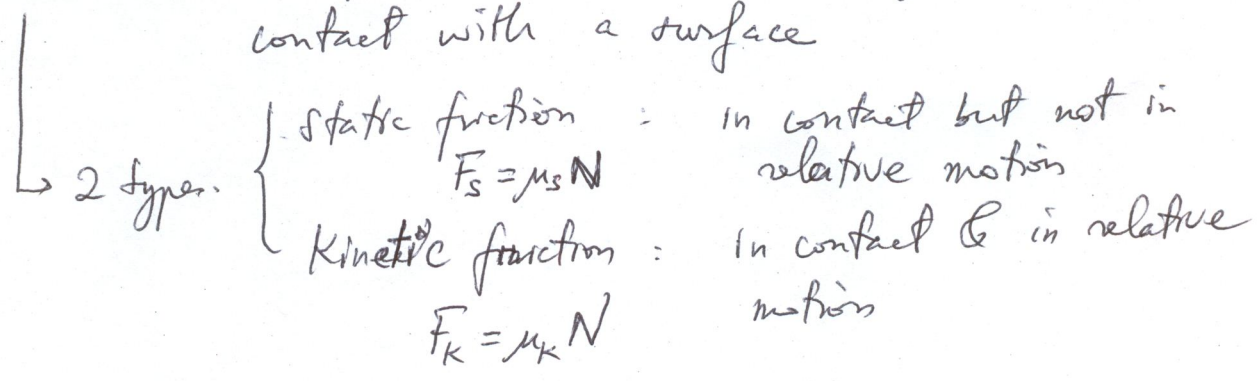 contact with a surface
static friction : in contact but not in
Fs = μsN relative motion
2 types.
Kinetic friction : in contact & in relative
motion
FK = μK N